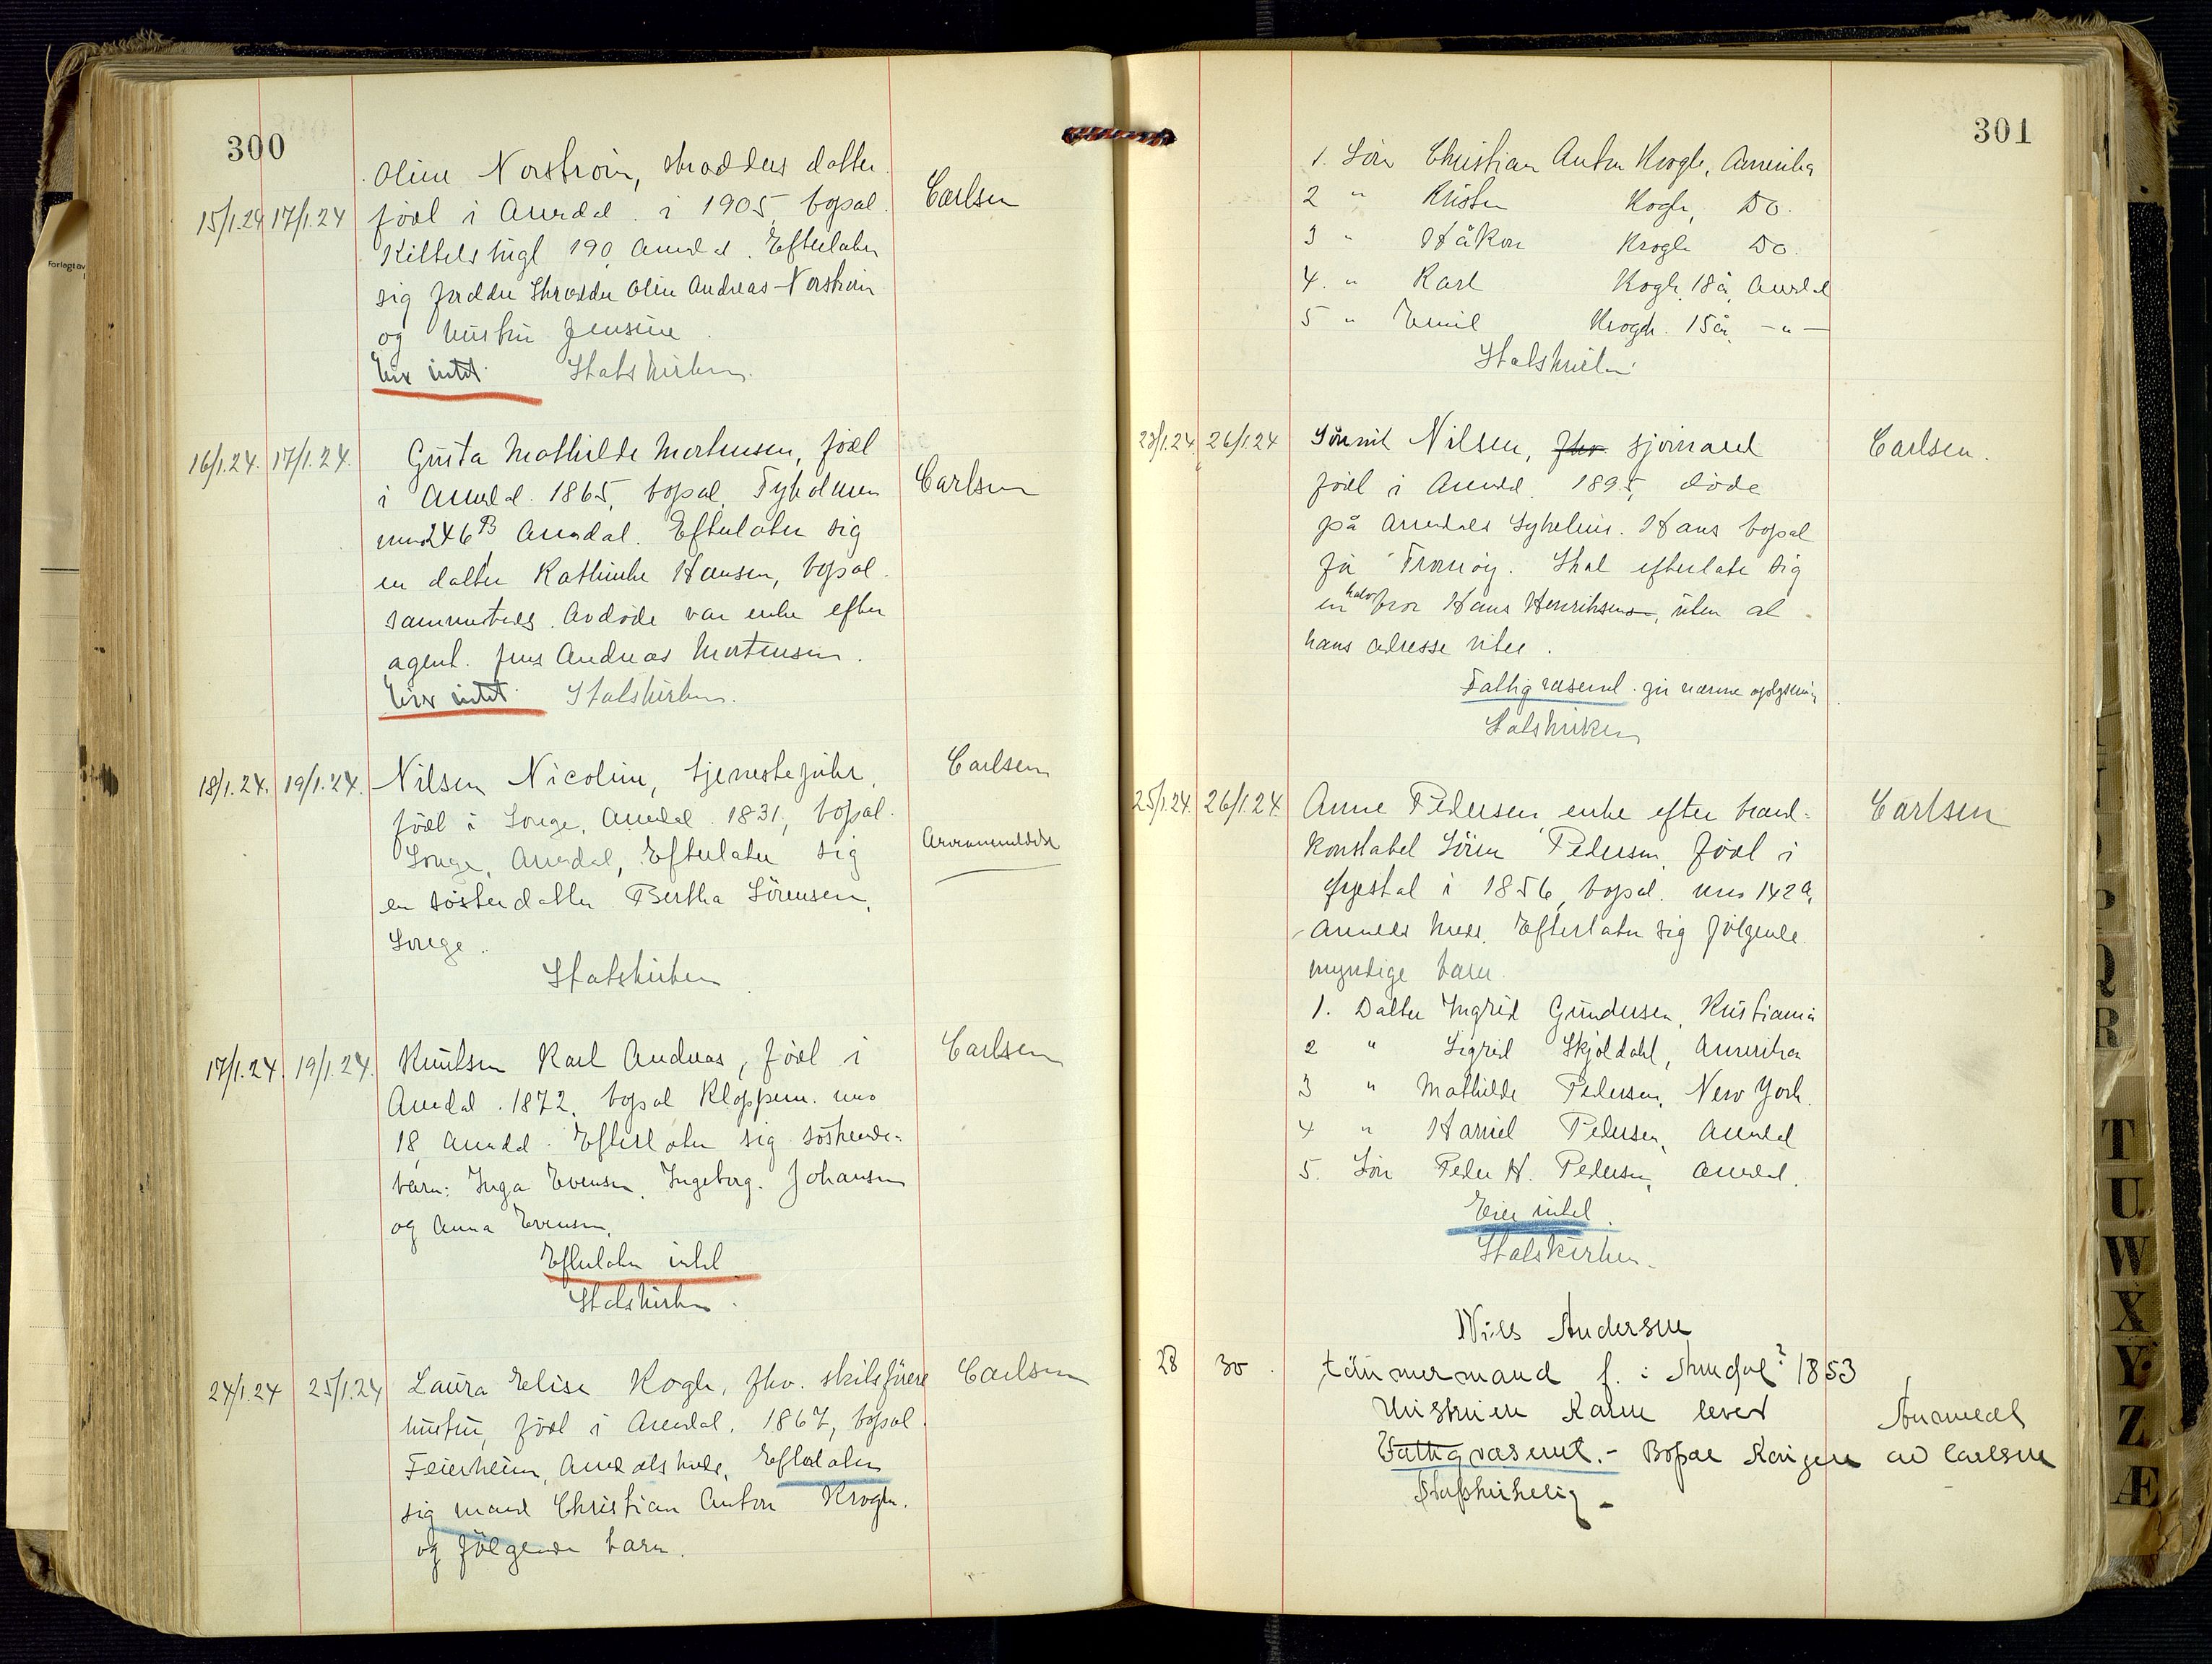 300
Oline Norstrøm, skrædders datter
15/1.24 17/1.24 født i Arendal i 1905, bopæl Carlsen
Kittelsbugt 190 Arendal. Efterlater
sig forældre Skrædder Olin Andreas Norstrøm
og hustru Jensine.
Eier intet. Statskirken.
16/1.24. 17/1.24. Gusta Mathilde Mortensen, født
i Arendal 1865, bopæl Tyholmen Carlsen
246 B Arendal. Efterlater sig
en datter Kathinke Hansen, bopæl
sammesteds. Avdøde var enke efter
agent Jens Andreas Mortensen.
Eier intet. Statskirken.
18/1.24. 19/1.24. Nilsen Nicoline, tjenestepike, Carlsen
født i Songe, Arendal 1831, bopæl
Songe, Arendal, Efterlater sig
en søsterdatter Bertha Sörensen,
Songe.
Statskirken
17/1.24. 19/1.24. Knutsen Karl Andreas, født i Carlsen
Arendal 1872, bopæl Kloppern. nr
18, Arendal. Efterlater sig søskende-
barn: Inga Evensen, Ingeborg Johansen
og Anna Evensen.
Efterlater intet
Statskirken.
24/1.24 25/1.24 Laura Elise Krogh, fhv. skibsförers Carlsen
hustru, født i Arendal, 1867, bopæl
Feierheim, Arendals , Efterlater
sig mand Christian Anton Krogh.
og følgende barn.
301
1. Sön Christian Anton Krogh, Amerika
2 " Kristen Krogh, Do.
3 " Håkon Krogh Do.
4. " Karl Krogh, 18 år, Arendal
5 " Emil Krogh. 15 år, - " -
Statskirken
23/1.24. 26/1.24 Nilsen, fhv sjømand Carlsen.
født i Arendal 1895, døde
på Arendals Sykehus. Hans bopæl
på Tromøy. Skal efterlate sig
en halvbror Hans Henriksen, uten at
hans adresse vites.
Fattigvæsenet gir nærmere oplysning.
Statskirken
25/1.24. 26/1.24. Anne Pedersen, enke efter brand- Carlsen
konstabel Sören Pedersen, født i
Øyestad i 1856, bopæl nr 142 a,
Arendal . Efterlater sig følgende
myndige barn.
1. Datter Ingrid Gundersen, Kristiania
2 " Sigrid Skjoldahl, Amerika
3 " Mathilde Pedersen, New York.
4 " Pedersen, Arendal
5. Sön Peder H. Pedersen, Arendal.
Eier intet.
Statskirken.
Niels Andersen
28 30. tømmermand f. i Arendal? 1853
Hustruen Karen lever Anmeldt
Fattigvæsenet. - Bopæl av Carlsen
Statskirkelig -
T
U
W
X
Y
Z
Æ